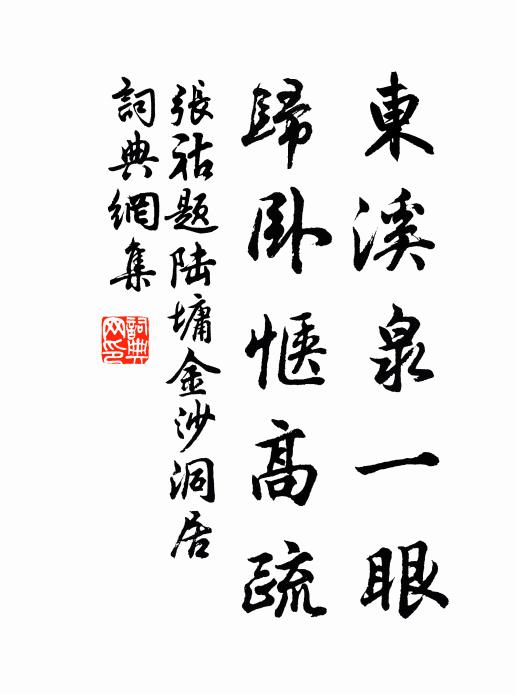 東溪泉一眼
歸卧愜高疏
張祜題陸墉金沙洞居
詞典網集
詞典网印